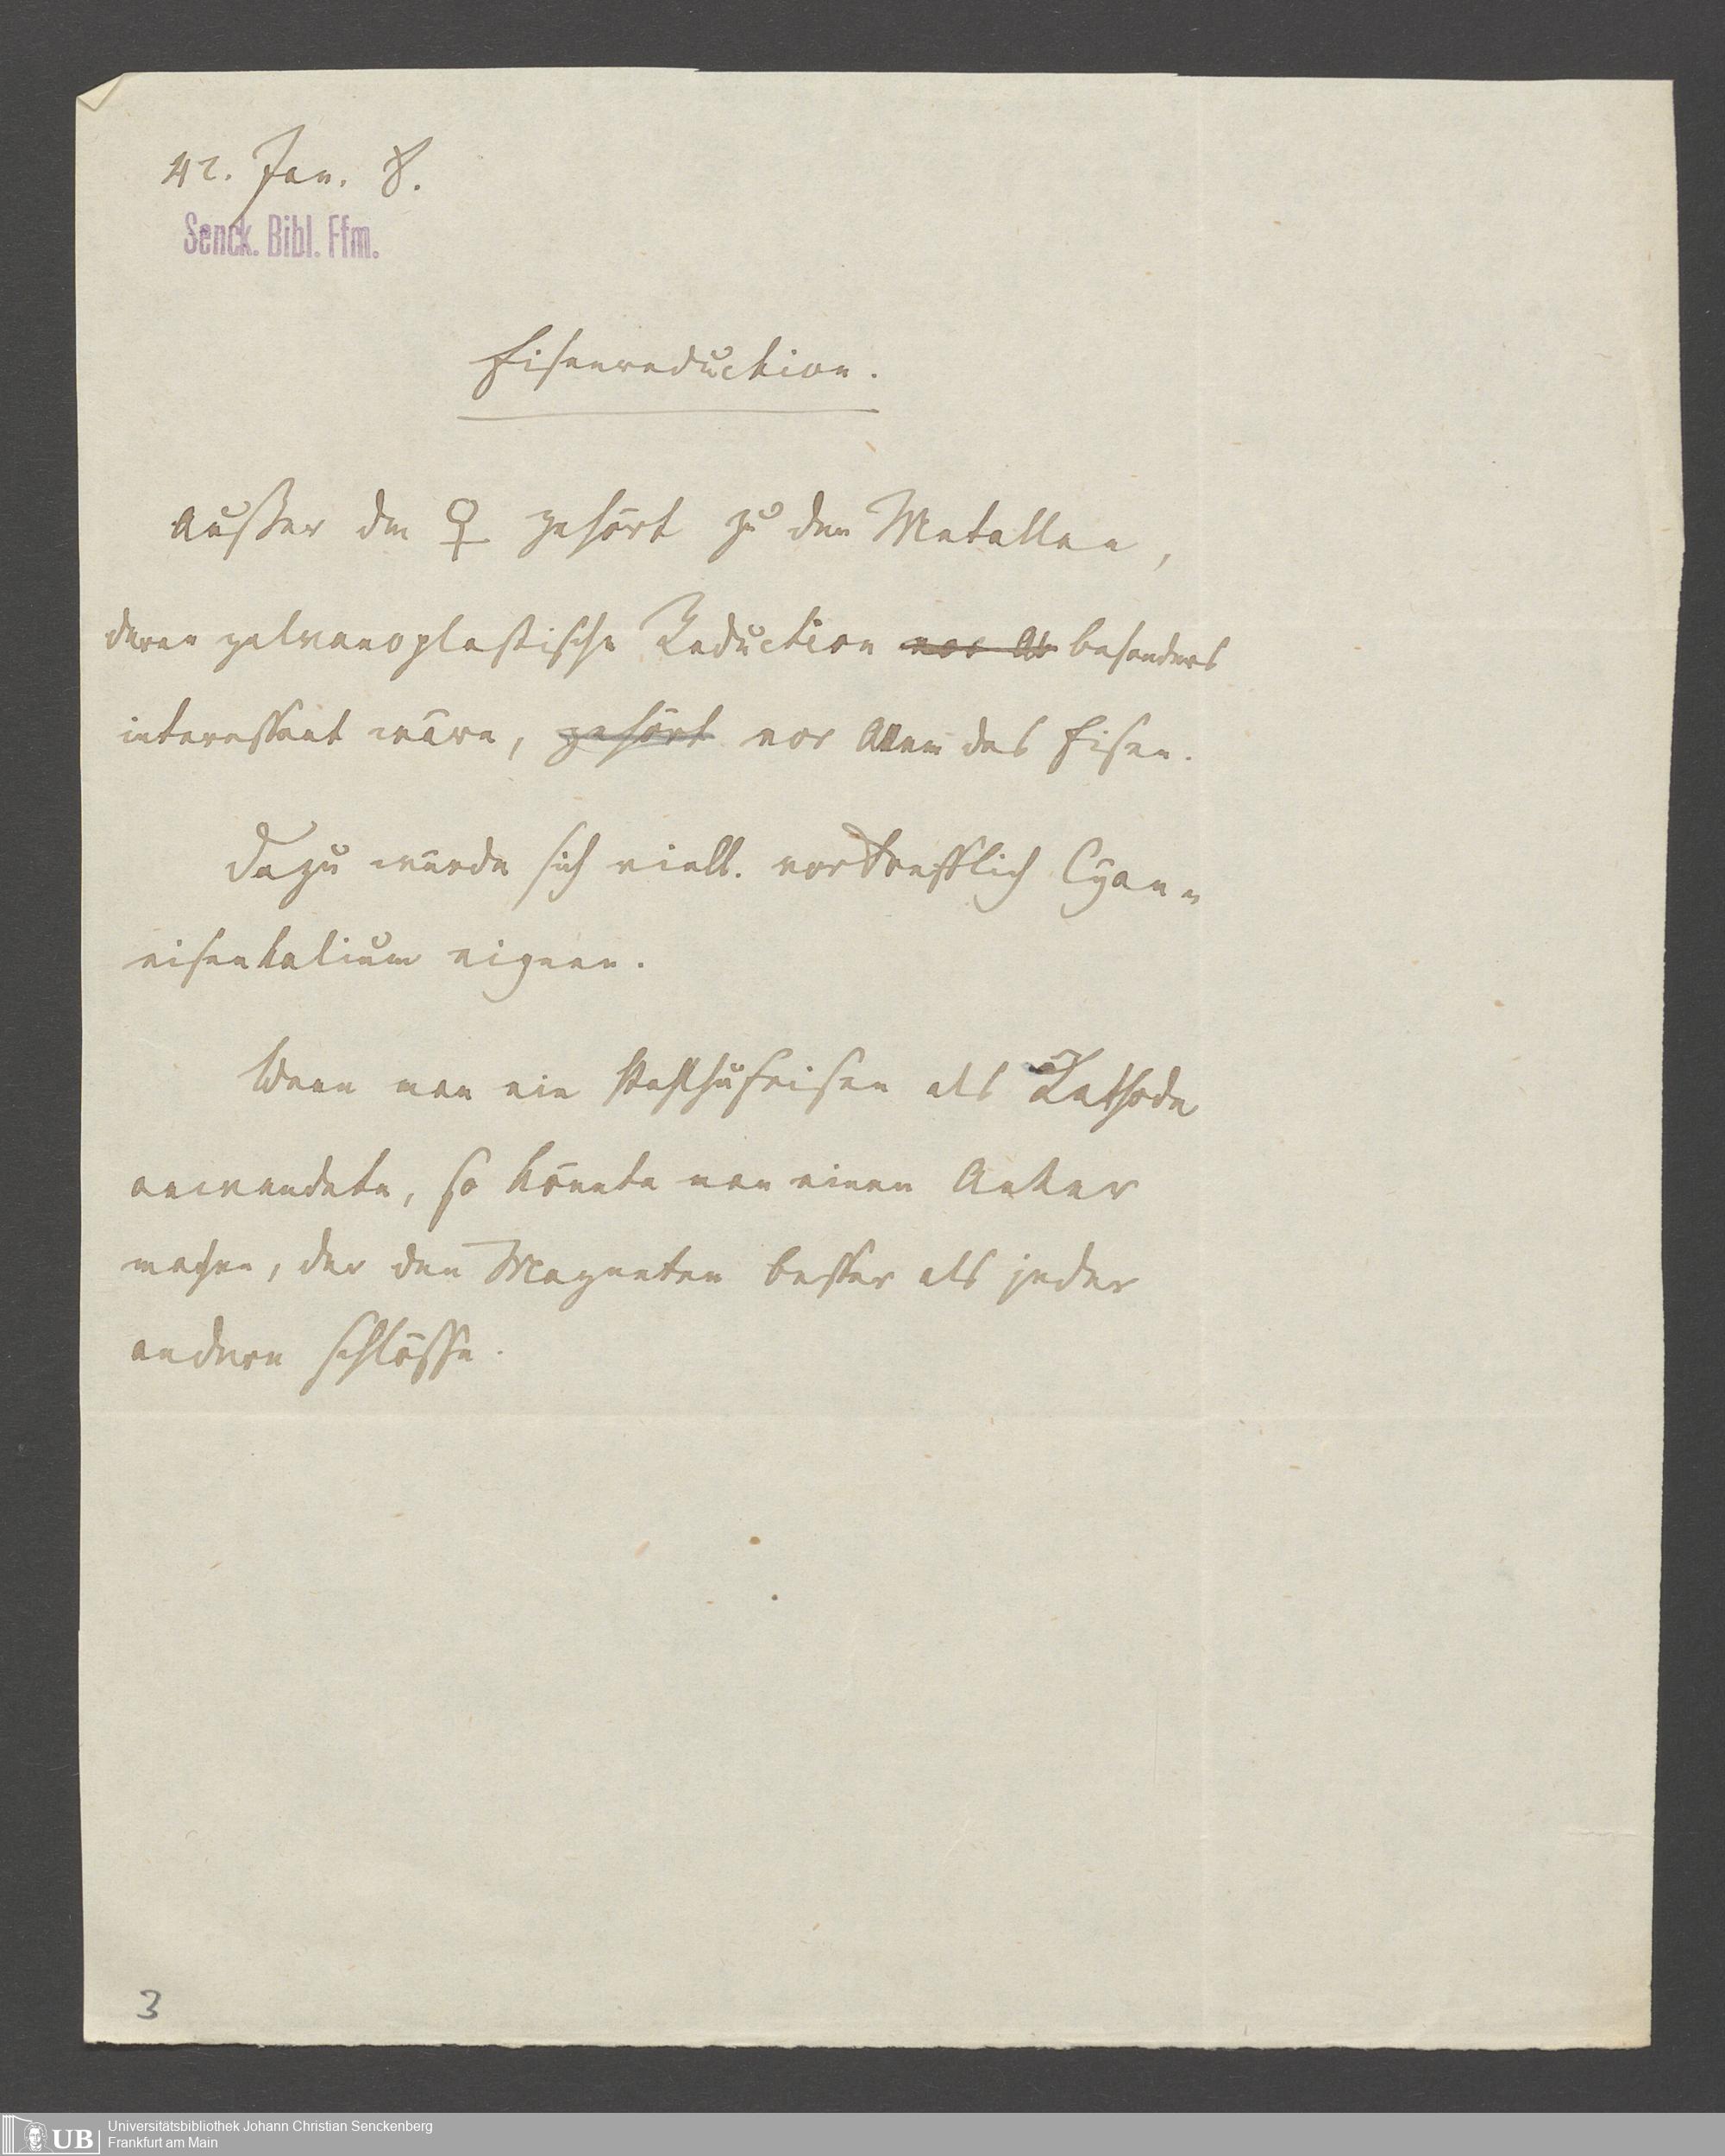 42. Jan. 8.
Senck. Bibl. Ffm.
Eisenreduction.
Außer dem ♀ gehört zu den Metallen,
deren galvanoplastische Reduction vor Al besonders
interessant wäre, gehört vor Allem das Eisen.
Dazu würde sich viell. vortrefflich Cyan-
eisenkalium eignen.
Wenn man ein Stahlhufeisen als Kathode
anwendete, so könnte man einen Anker
machen, der den Magneten besser als jeder
andere schlösse.
3
UB
Universitätsbibliothek Johann Christian Senckenberg
Frankfurt am Main